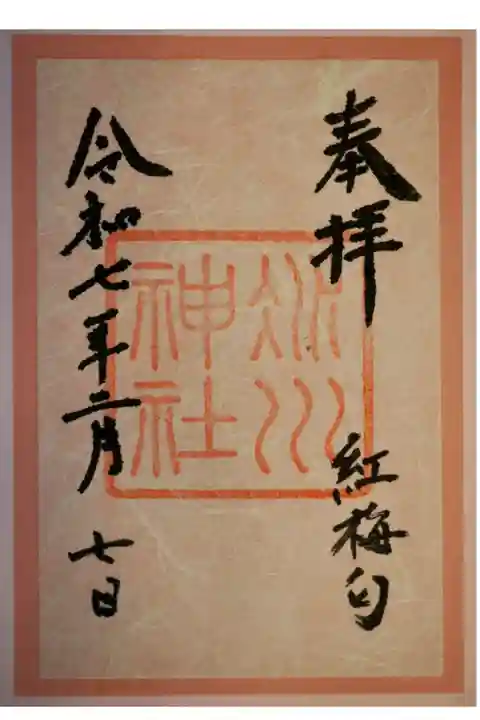 奉拝
紅梅匂
冰川
神社
令和七年二月
七日